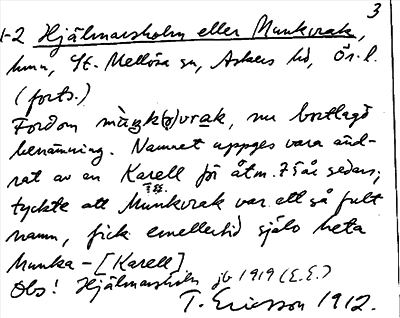 3
1-2 Hjälmarsholm eller Munkvrak,
hmn, St. Mellösa sn, Askers hd, Ör. l.
(forts.)
Fordom mùŋk(ə)vrak, nu bortlagd
benämning. Namnet uppges vara änd-
rat av en Karell för åtm. 75 år sedan;
tyckte att Munkvrak var ett så fult
namn, fick emellertid själv heta
Munka-[Karell]
Obs! Hjälmarsholm jb 1919 (E.E.)
T. Ericsson 1912.